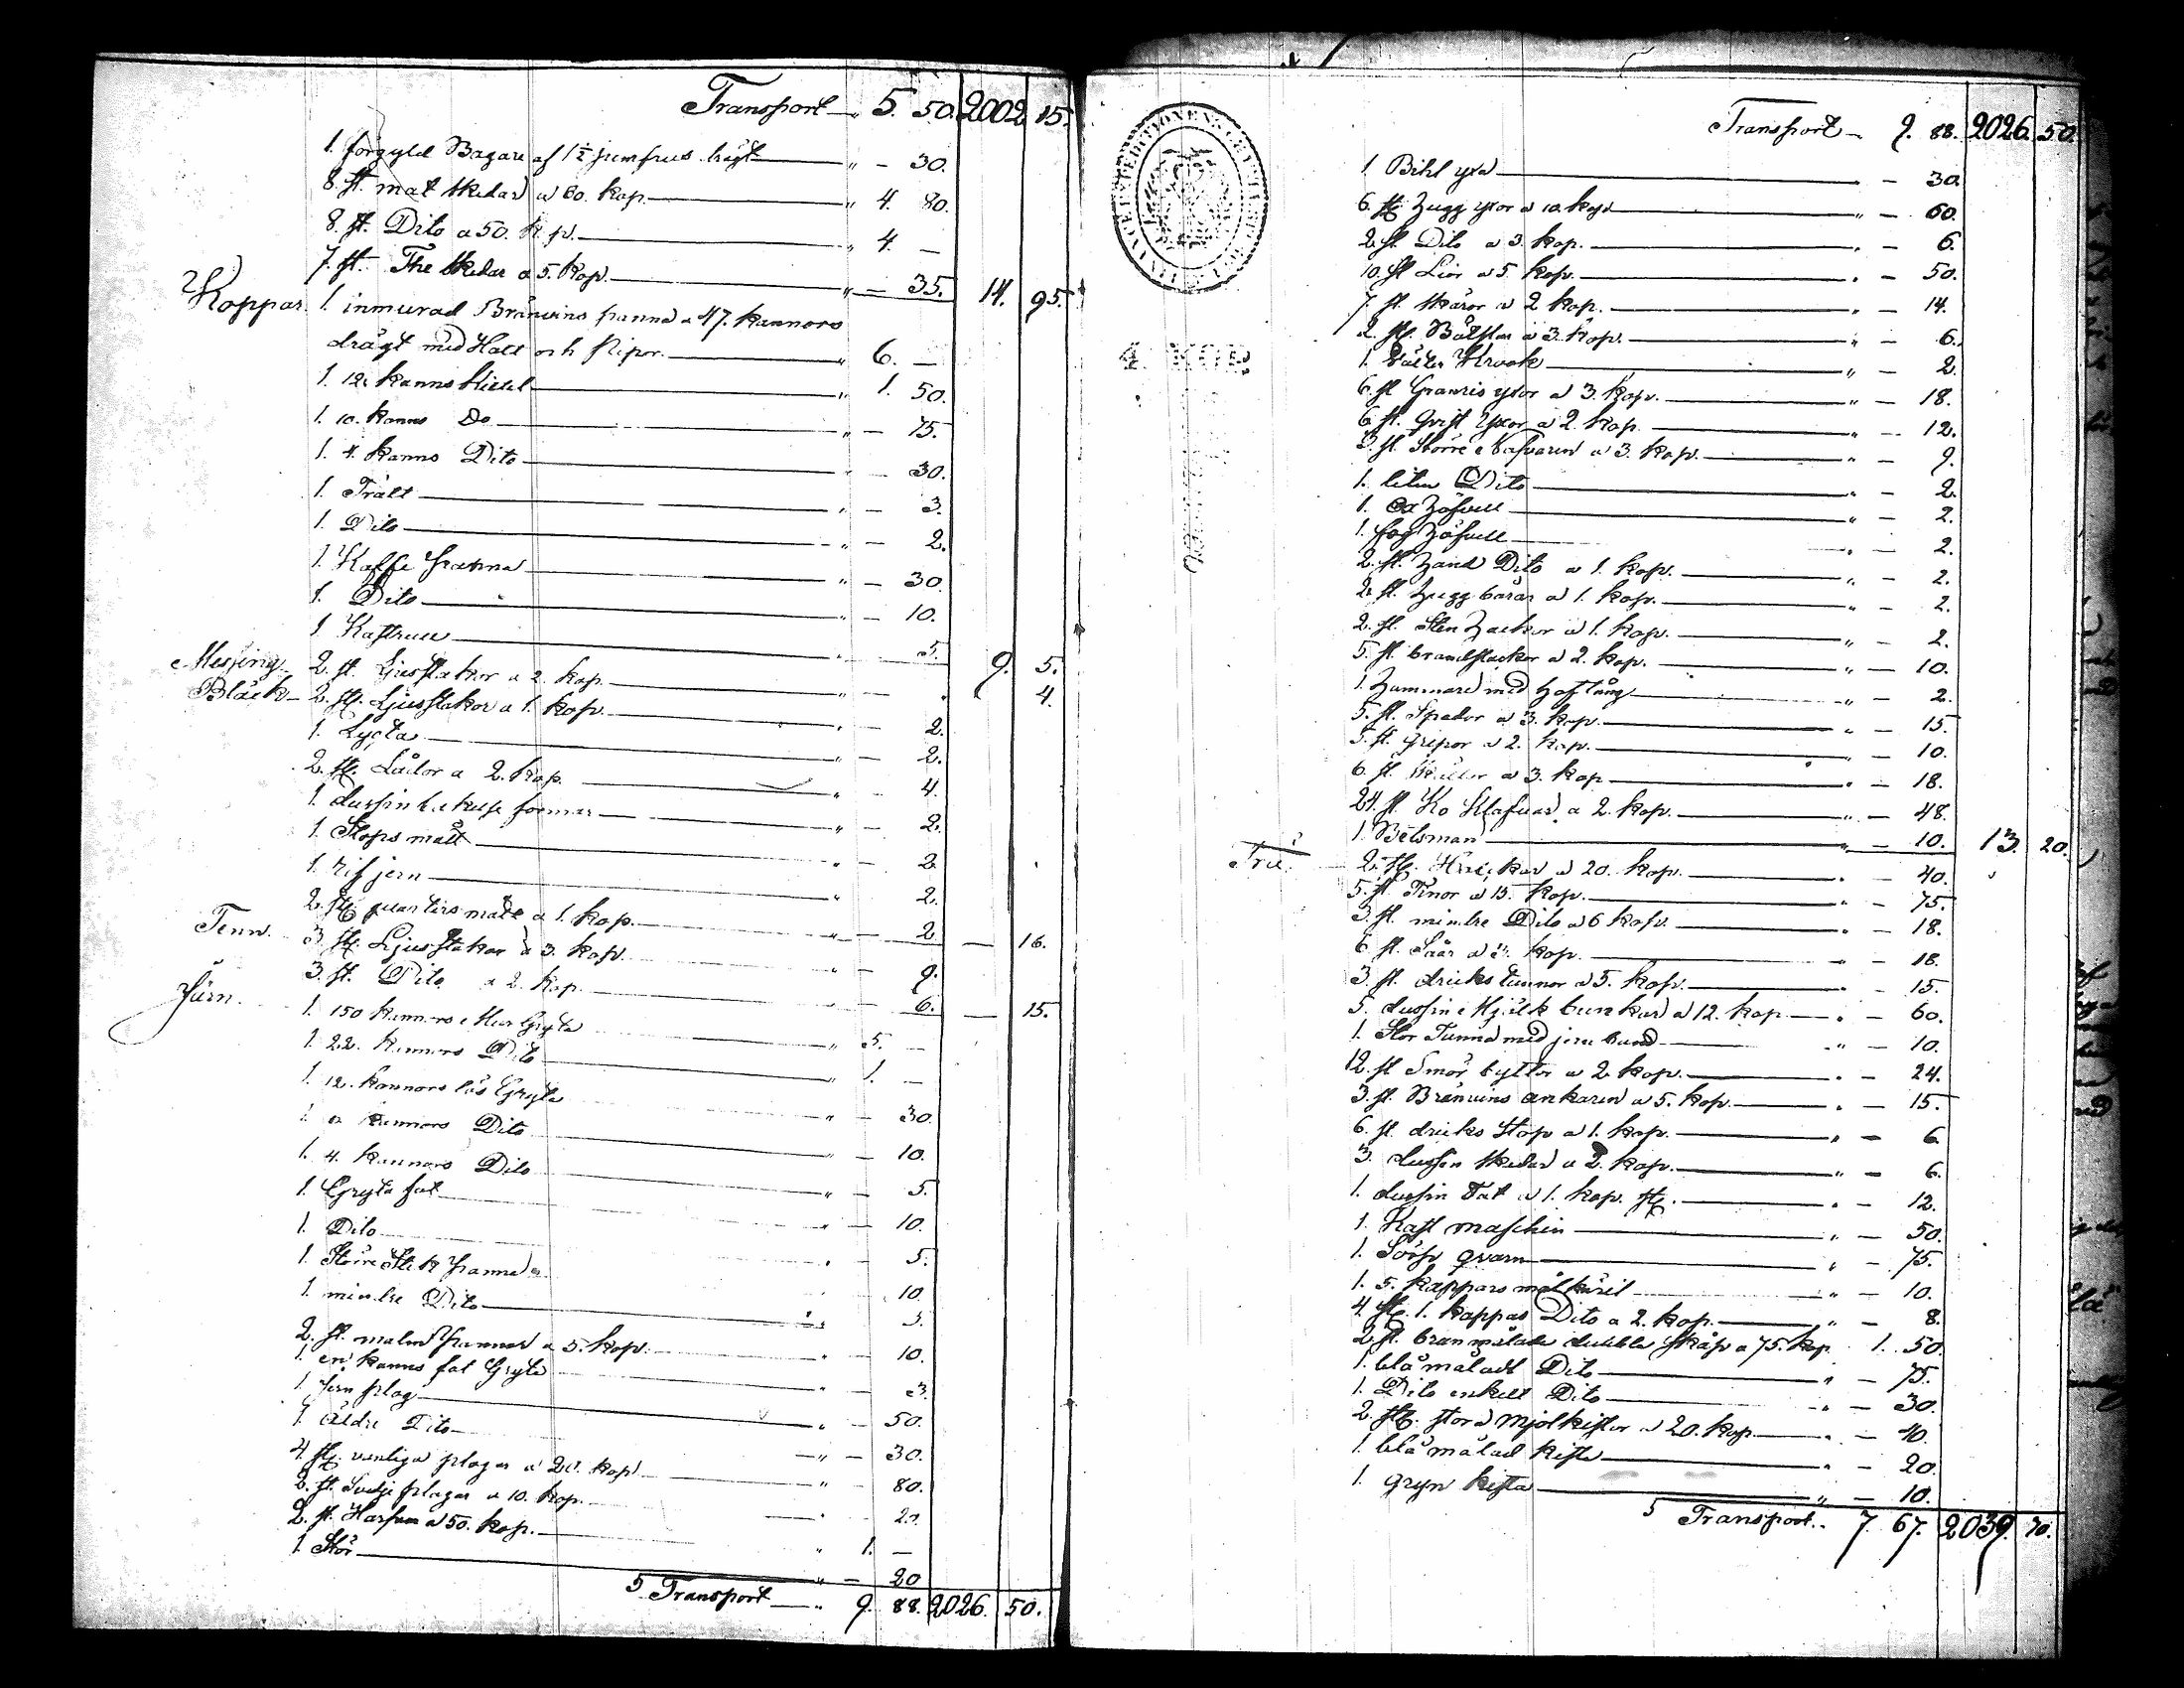 Transport — " 5. 50. 2002 15.
1. förgyld Bagare af 1 ½ jumfrus drägt — " — 30.
8. st. mat skedar a 60. kop. — " 4. 80.
8. st. Dito a 50. kop. — " 4. —
7. st. The skedar a 5. kop. — " — 35. 14. 95.
Koppar. 1. inmurad Bränvins panna a 47. kannors
drägt med Hatt och Pipor. — " 6. —
1. 12. kanns kittel — " 1. 50.
1. 10. kanns Do — " — 75.
1. 4. kanns Dito — " — 30.
1. Tratt — " — 3.
1. Dito — " — 2.
1. Kaffe panna — " — 30.
1. Dito — " — 10.
1. Kastrull — " — 5. 9. 5.
Messing. 2. st. Ljusstakor a 2. kop. — " — . 4.
Bläck — 2. st. Ljusstakor a 1. kop. — " — 2.
1. Lyckta — " — 2.
2. st. Lådor a 2. kop. — " — 4.
1. dussin bakelse formar — " — 2.
1. Stops mått — " — 2.
1. rif jern — " — 2.
2. st. quarters mått a 1. kop. — " — 2. — 16.
Tenn. 3. st. Ljusstakor a 3. kop. — " — 9.
3. st. Dito a 2. kop. — " — 6. — 15.
Järn. 1. 150 kannors Mur Gryta — " 5. —
1. 22. kannors Dito — " 1. —
1. 12. kannors lös Gryta — " — 30.
1. kannors Dito — " — 10.
1. 4. kannors Dito — " — 5.
1. Gryta fat — " — 10.
1. Dito — " — 5.
1. Större Stek panna — " — 10.
1. mindre Dito — " — 5.
2. st. malm pannor a 5. kop. — " — 10.
1. en kanns fat Gryta — " — 3.
1. jern plog — " — 50.
1. äldre Dito — " — 30.
4. st. vanliga plogar a 20. kop. — " — 80.
2. st. Svedje plogar a 10. kop. — " — 20.
2. st. Harfvar a 50. kop. — " 1. —
1. Stör — " — 20
5 Transport — " 9. 88. 2026. 50.
Transport — 9. 88. 2026. 50.
1. Bihl yxa — " — 30.
6. st. Hugg yxor a 10. kop — " — 60.
2. st. Dito a 3. kop. — " — 6.
10. st. Lior a 5. kop. — " — 50.
7. st. skäror a 2 kop. — " — 14.
2. st. a 3. kop. — " — 6.
1. Krook — " — 2.
6. st. Granris yxor a 3. kop. — " — 18.
6. st. qvist Yxor a 2. kop. — " — 12.
3. st. Större Nafvaren a 3. kop. — " — 9.
1. liten Dito — " — 2.
1. Ox Höfvell — " — 2.
1. fog Höfvell — " — 2.
2. st. Hand Dito a 1. kop. — " — 2.
2. st. Hugg bårar a 1. kop. — " — 2.
2. st. Sten Hackor a 1. kop. — " — 2.
5. st. brandstackor a 2. kop. — " — 10.
1. Hammare med Hoftång — " — 2.
5. st. Spador a 3. kop. — " — 15
5. st. gripor a 2. kop. — " — 10.
6. st. a 3. kop — " — 18.
24. st. Ko Klafvar a 2. kop. — " — 48.
1. Betsman — " — 10. 13. 20.
Trä. 2. st. kar a 20. kop. — " — 40.
5. st. Tinor a 15. kop. — " — 75.
3. st. mindre Dito a 6 kop. — " — 18.
6. st. Såår a 3. kop. — " — 18.
3. st. dricks tunnor a 5. kop. — " — 15.
5. dussin Mjölk bunkar a 12. kop — " — 60.
1. Stor Tunna med jern band — " — 10.
12. st. Smör byttor a 2 kop. — " — 24.
3. st. Bränvins ankaren a 5. kop. — " — 15.
6. st. dricks stop a 1. kop. — " — 6.
3. dussin skedar a 2. kop. — " — 6.
1. dussin Fat a 1. kop. st. — " — 12.
1. Kast maschin — " — 50.
1. qvarn — " — 75.
1. 5. kappars mål käril — " — 10.
4. st. 1. kappas Dito a 2. kop. — " — 8.
2. st. brunmålade dubbla skåp a 75. kop 1. 50.
1. blå måladt Dito — " — 75.
1. Dito enkelt Dito — " — 30.
2. st. stora Mjölkistor a 20. kop. — " — 40.
1. blå målad kista — " — 20.
1. gryn kista — " — 10.
5 Transport. — 7. 67. 2039. 70.
4. KOP.